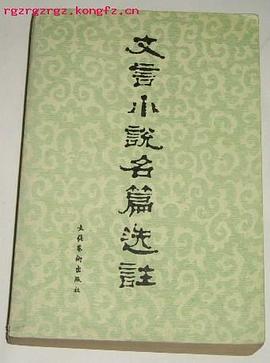 rgzrgzrgz.kongfz.cn
文言小説名篇选註
文化艺术出版社